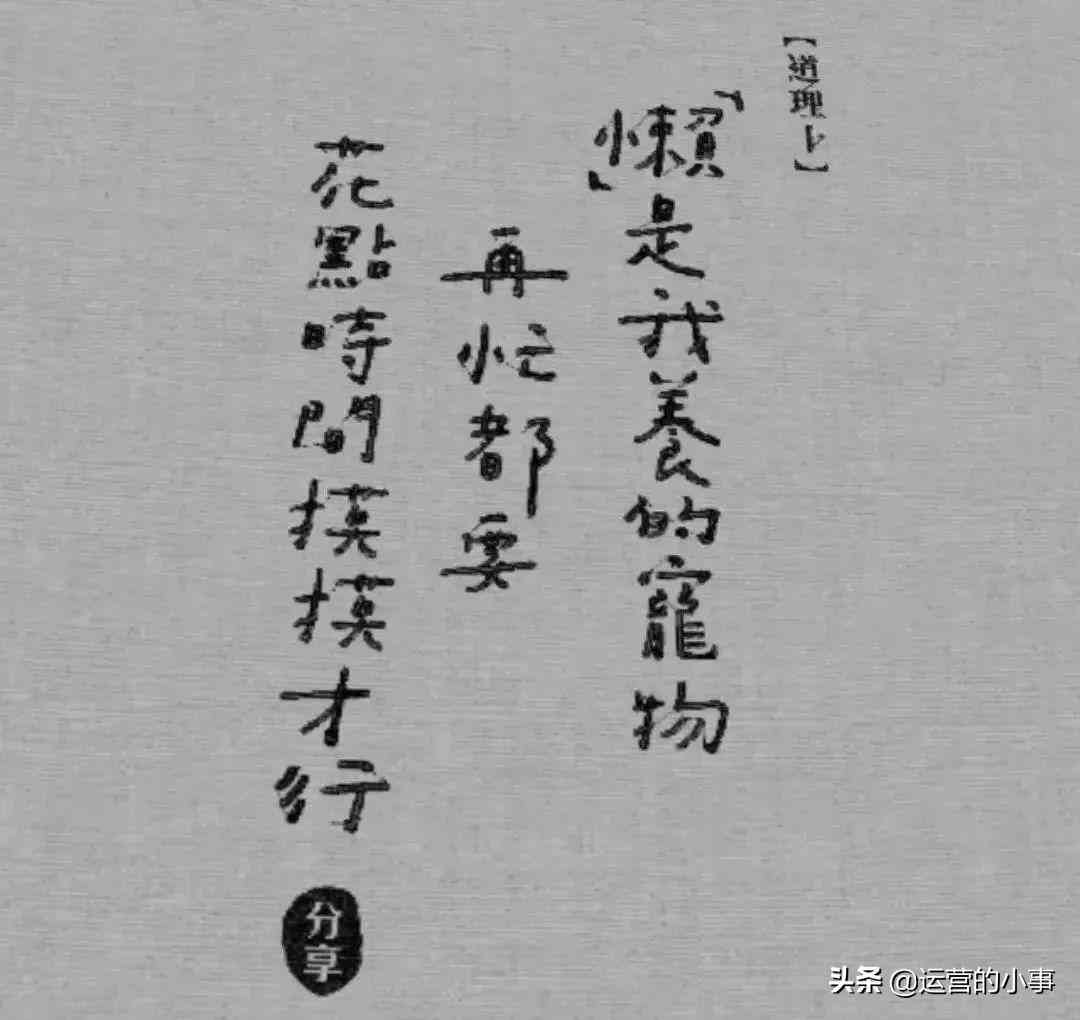 【道理上】
「懶」是我養的寵物
再忙都要
花點時間摸摸才行
分享
头条 @运营的小事